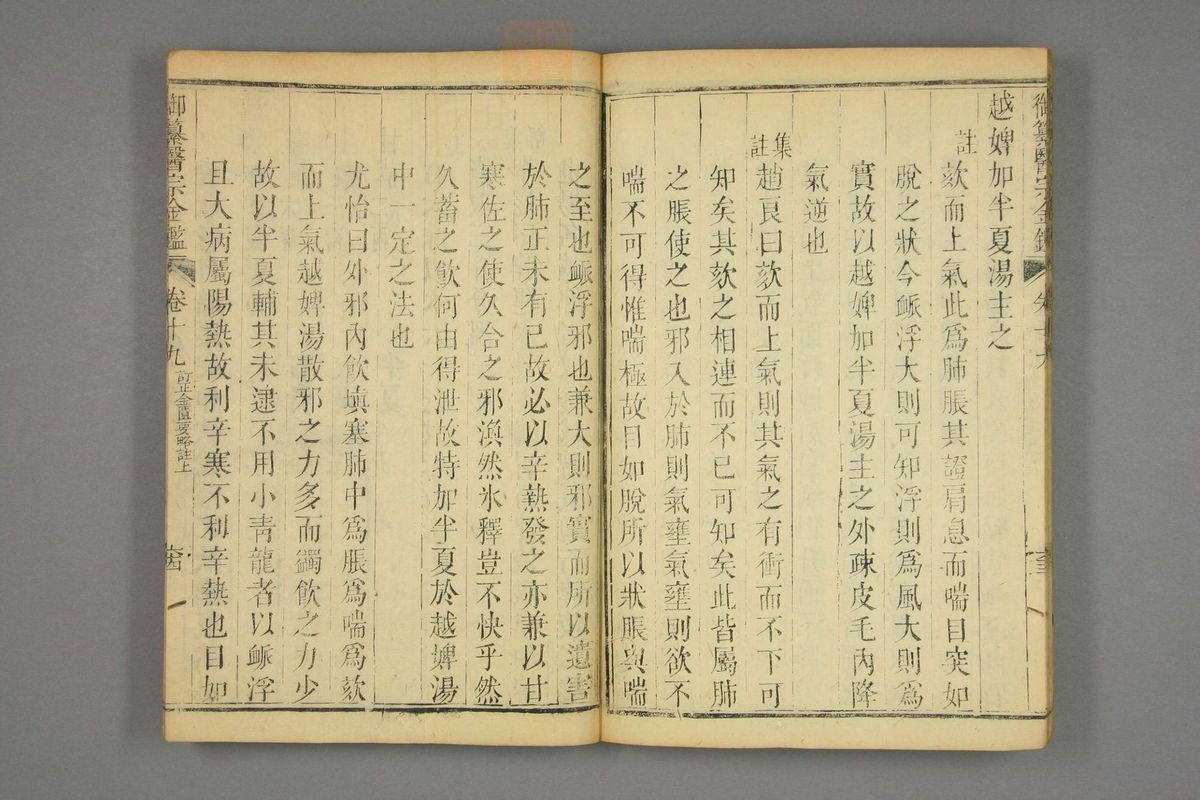 御纂醫宗金鑑
卷十九
六三
越婢加半夏湯主之
註
欬而上氣此爲肺脹其證肩息而喘目突如
脫之狀今䘑浮大則可知浮則爲風大則爲
實故以越婢加半夏湯主之外疎皮毛內降
氣逆也
集註
趙良曰欬而上氣則其氣之有衝而不下可
知矣其欬之相連而不已可知矣此皆屬肺
之脹使之也邪入於肺則氣壅氣壅則欲不
喘不可得惟喘極故目如脫所以狀脹與喘
之至也䘑浮邪也兼大則邪實而所以遺害
於肺正未有已故必以辛熱發之亦兼以甘
寒佐之使久合之邪渙然氷釋豈不快乎然
久蓄之飮何由得泄故特加半夏於越婢湯
中一定之法也
尤怡曰外邪內飮塡塞肺中爲脹爲喘爲欬
而上氣越婢湯散邪之力多而蠲飮之力少
故以半夏輔其未逮不用小靑龍者以䘑浮
且大病屬陽熱故利辛寒不利辛熱也目如
御纂醫宗金鑑
卷十九
訂正金匱要略註上
六四